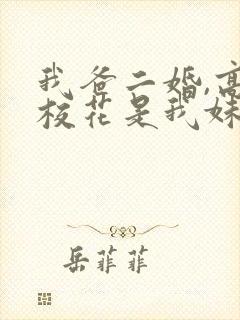 我爸二婚,高
校花是我妹
岳菲菲